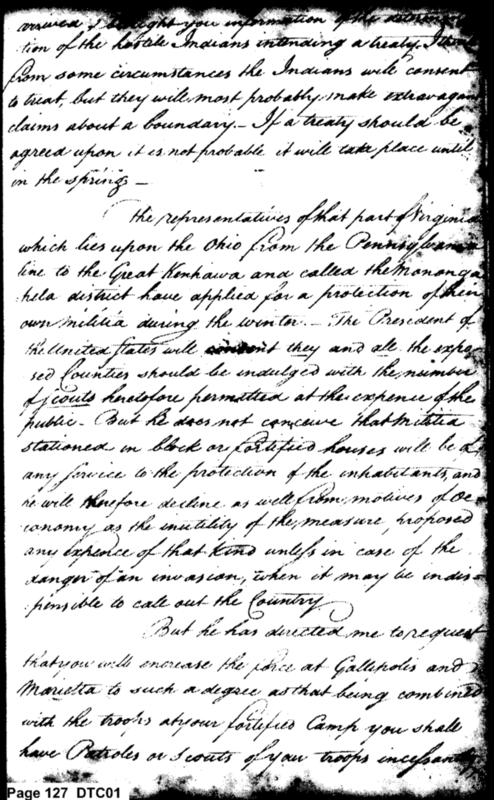 arrived I brought you information of the determina
tion of the hostile Indians intending a treaty. I think
from some circumstances the Indians will consent
to treat, but they will most probably make extravagant
claims about a boundary — If a treaty should be
agreed upon it is not probable it will take place until
in the spring —
The representatives of that part of Virginia
which lies upon the Ohio from the Pennsylvania
line to the Great Kenhawa and called the Mononga
hela district have applied for a protection of their
own militia during the winter. — The President of
the United States will consent they and all the expo
sed Counties should be indulged with the number
of scouts heretofore permitted at the expence of the
public — But he does not conceive that Militia
stationed in block or fortified houses will be of
any service to the protection of the inhabitants, and
he will therefore decline as well from motives of Oe
conomy as the inutility of the measure proposed
any expence of that kind unless in case of the
danger of an invasion, when it may be indis
pensible to call out the Country
But he has directed me to request
that you will encrease the force at Gallepolis and
Marietta to such a degree as that being combined
with the troops at your fortified Camp you shall
have Patroles or Scouts of your troops incessantly
Page 127 DTC01